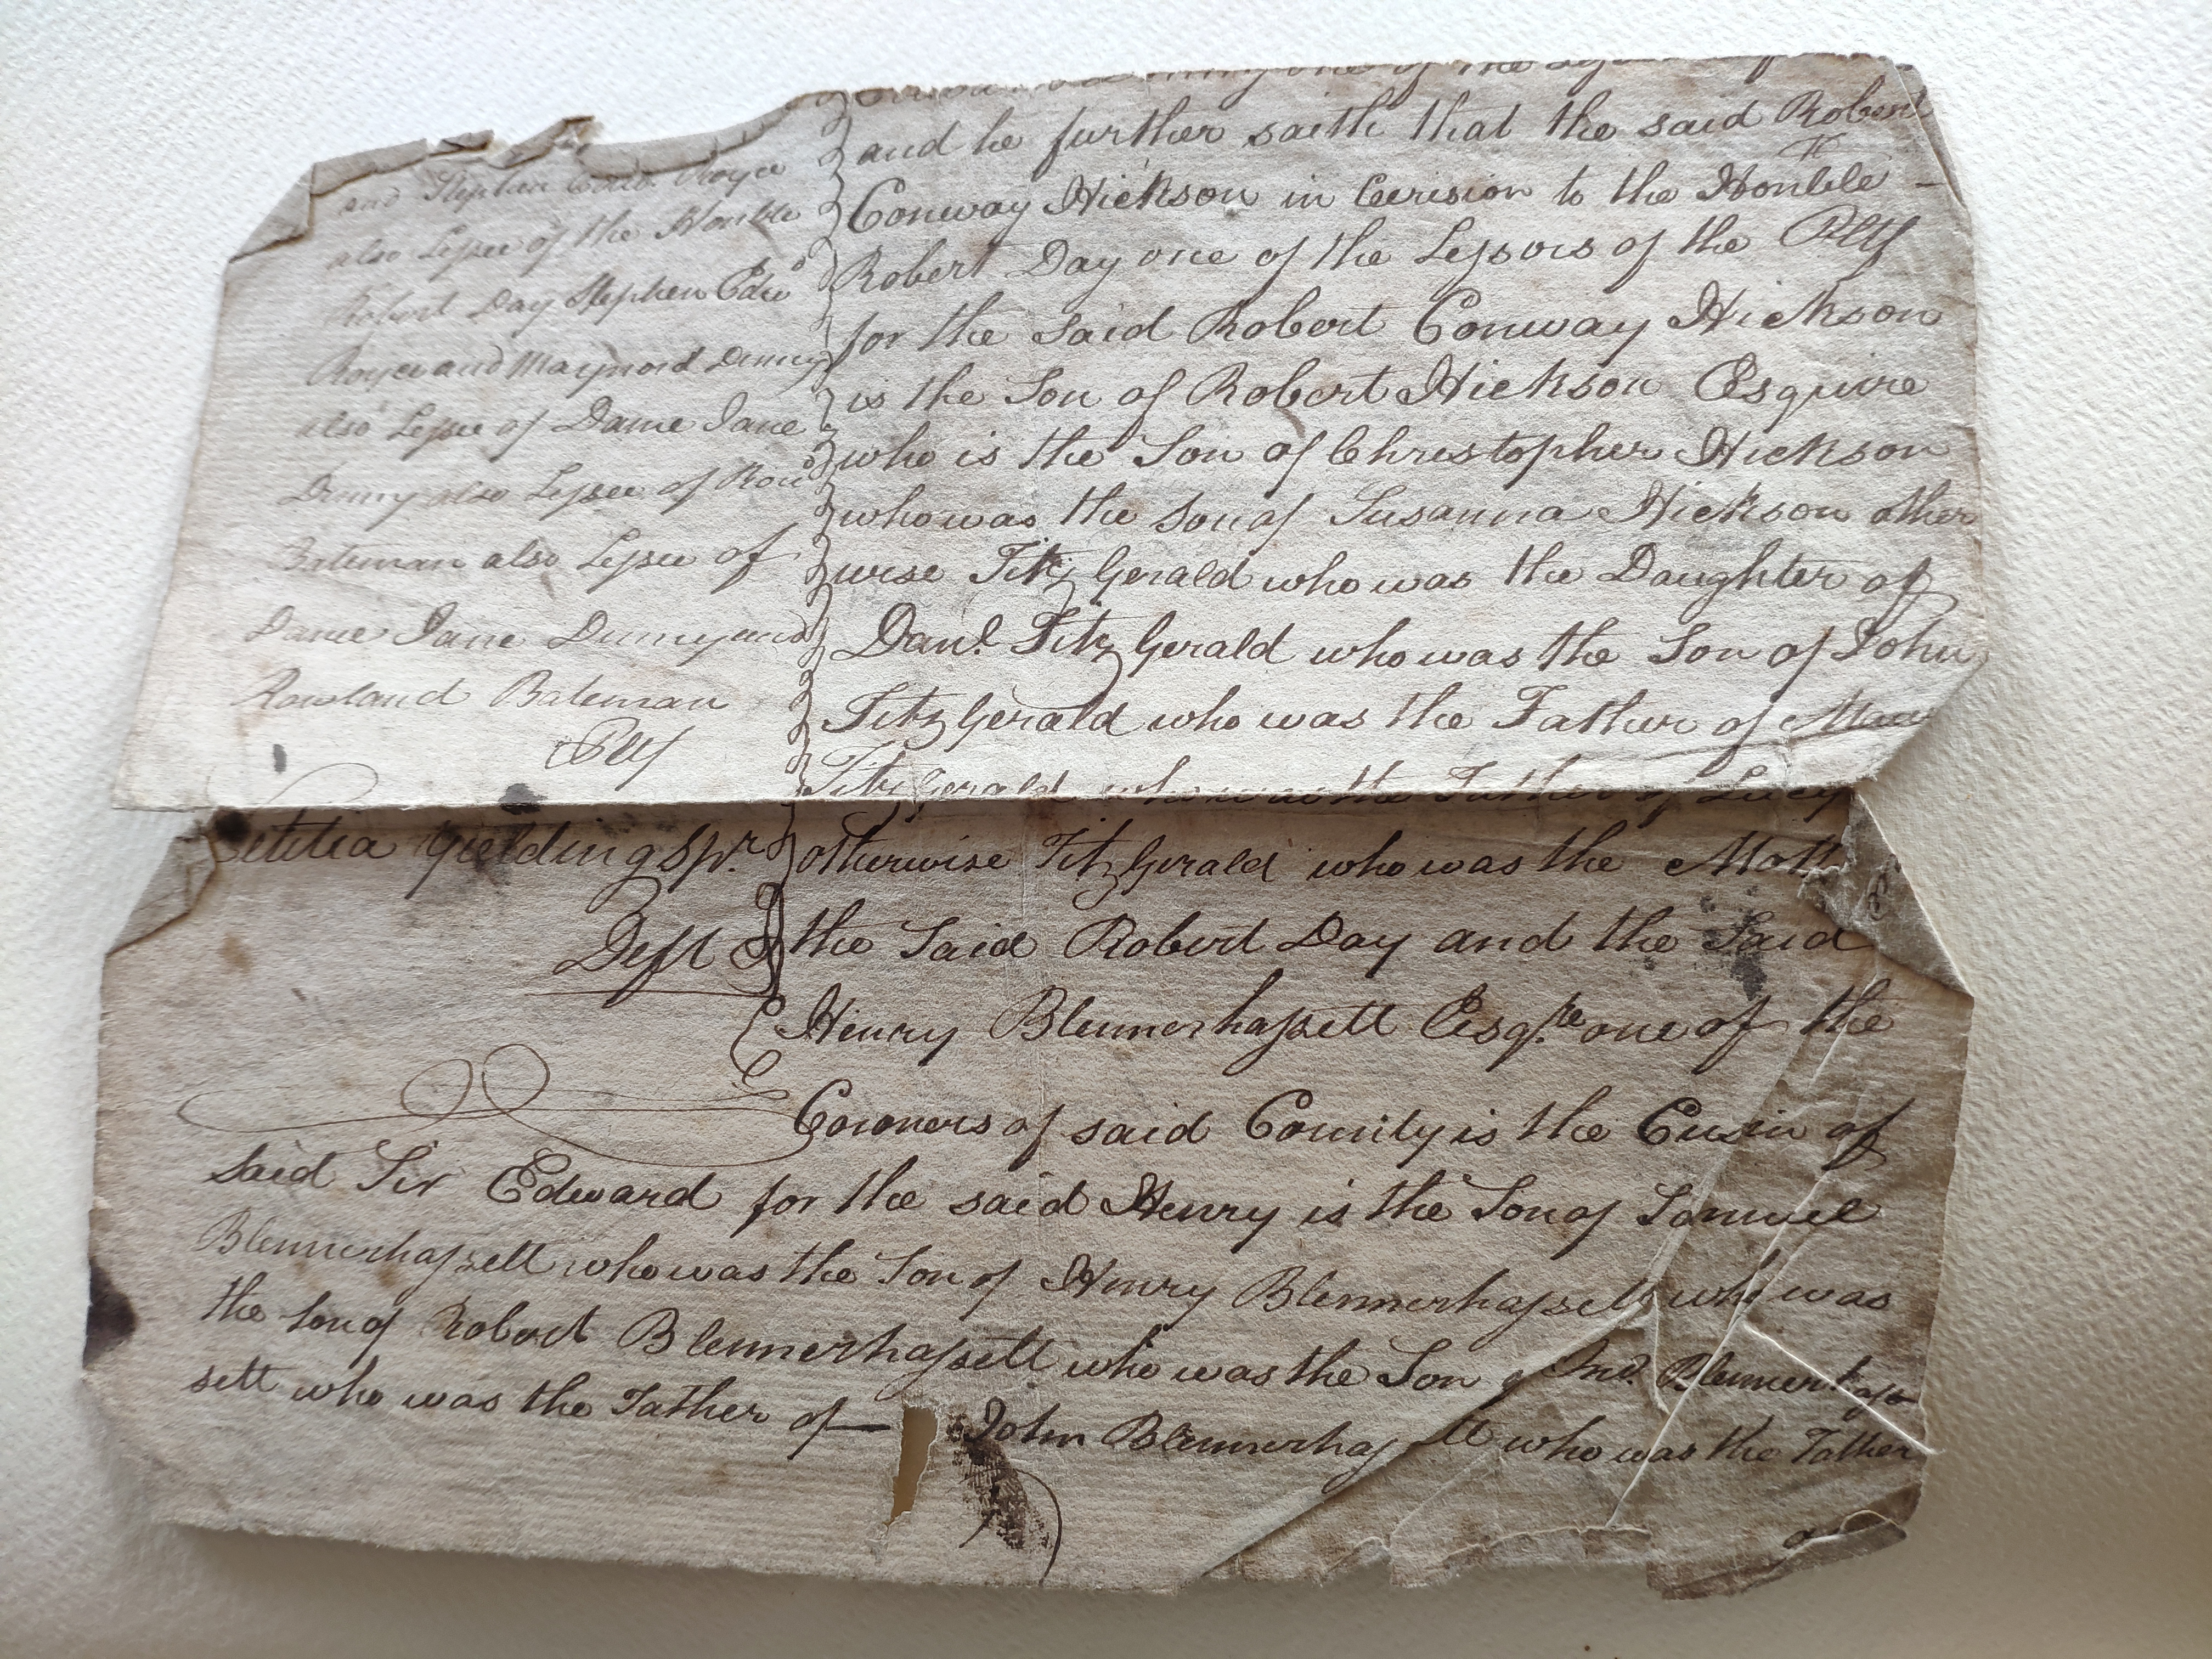 and Stephen Edwd. Royce
also Lessee of the Honble
Robert Day Stephen Edwd
Royce and Maynard Denny
also Lessee of Dame Jane
Denny also Lessee of Rowd
Bateman also Lessee of
Dame Jane Denny and
Rowland Bateman
Plff
Letitia Yielding Spr.
Deft
one of the
and he further saith that the said Robert
Conway Hickson in Cousion to the Honble
Robert Day one of the Lessors of the Plff
for the said Robert Conway Hickson
is the Son of Robert Hickson Esquire
who is the Son of Christopher Hickson
who was the Son of Susanna Hickson other
wise Fitz Gerald who was the Daughter of
Danl. Fitz Gerald who was the Son of John
Fitz Gerald who was the Father of
Fitz Gerald who was the Father of Lucy
otherwise Fitz Gerald who was the Moth
the Said Robert Day and the Said
Henry Blennerhassett Esqre. one of the
Coroners of said County is the Cusin of
said Sir Edward for the said Henry is the Son of Samuel
Blennerhassett who was the Son of Henry Blennerhassett who was
the Son of Robert Blennerhassett who was the Son of Jno. Blennerhass
sett who was the Father of John Blennerhassett who was the Father